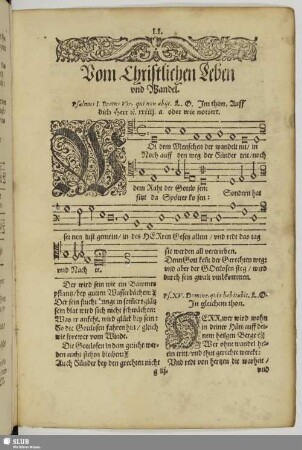 LI.
Vom Christlichen Leben
vnd Wandel.
Psalmus I. Beatus vir, qui non abijt. L. O. Im thon, Auff
dich Herr rc. xxiiij. a. oder wie notiert.
WOl dem Menschen der wandelt nit, in
Noch auff den weg der Sünder trit, noch
dem Raht der Gottlosen:
Sondren hat
sitzt da Spötter kosen:
sei nen lust gemein, in des HErren Gesetz allein, vnd redt das tag
vnd Nach te.
Der wird sein wie ein Baum
pflantzt, bey
Der sein frucht bringt in seiner
sein blat wird sich nicht schwächen:
Was er anfaht, wird glück bey sein:
So die Gottlosen fahren hin, gleich
wie sprewer vom Winde.
Die Gottlosen in dem gericht wer-
den nicht stehen bleiben:
Auch Sünder bey den grechten nicht
sie werden all vertrieben.
Denn Gott kent der Gerechten weg:
vnd aber der Gottlosen steg, wird
durch sein gwalt vmbkommen.
Ps. XV. Domine, quis habitabit. L. O.
Im gleichem thon.
HERR wer wird wohn
in deiner Hütt auff dei-
nem heilgen Berge:
Wer ohne wandel her-
ein tritt, vnd thut gerichte wercke:
Vnd redt von hertzen die warheit,
g iij
vnd
SLUB